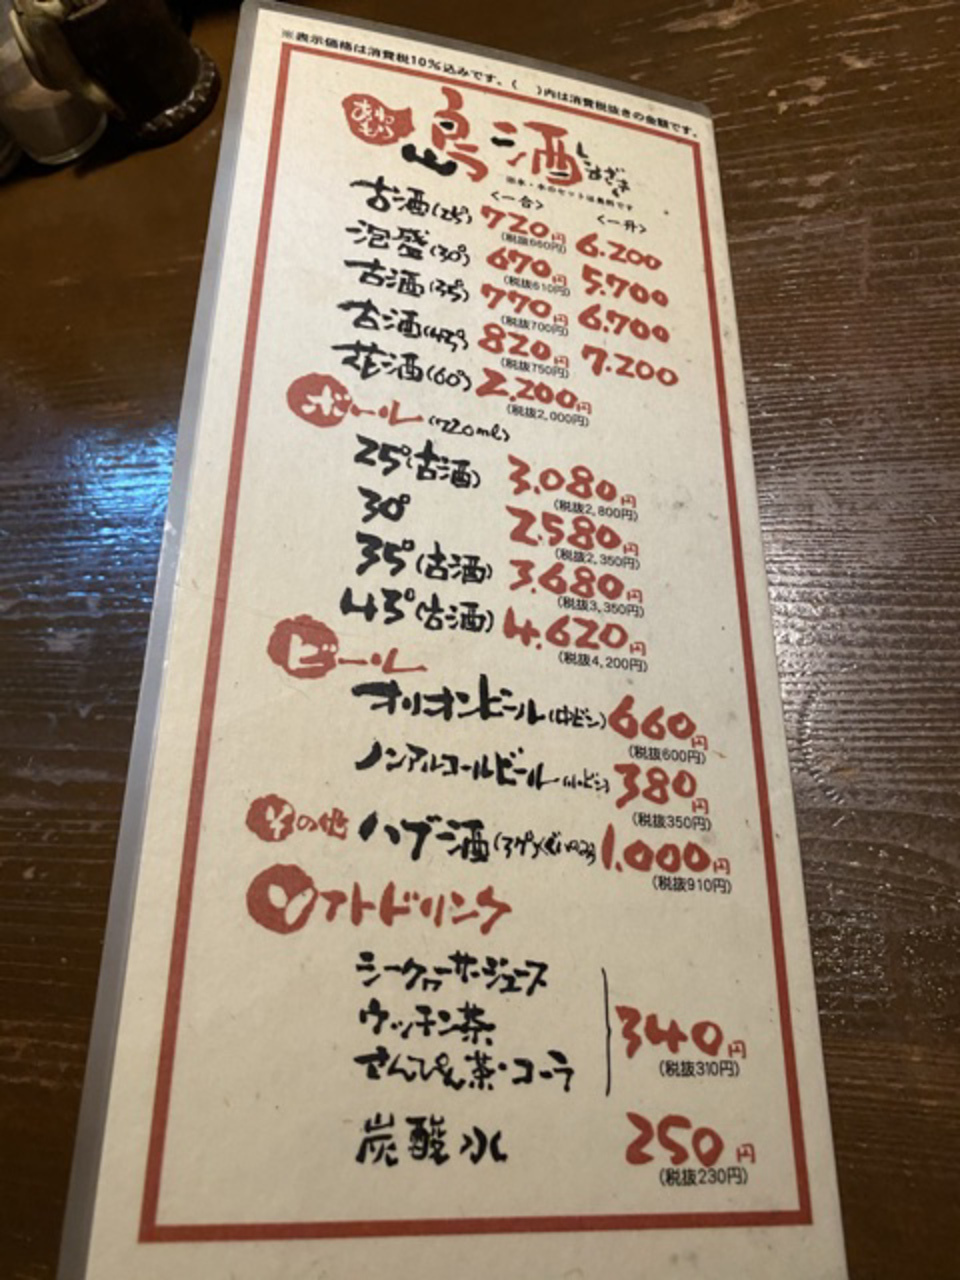 ※表示価格は消費税10%込みです。(　)内は消費税抜きの金額です。
あわもり 島酒 しまざき
※氷・水のセットは無料です
<一合> <一升>
古酒(25°) 720円 6.200
(税抜660円)
泡盛(30°) 670円 5.700
(税抜610円)
古酒(35°) 770円 6.700
(税抜700円)
古酒(43°) 820円 7.200
(税抜750円)
花酒(60°) 2.200円
(税抜2,000円)
ボトル(720ml)
25°(古酒) 3.080円
(税抜2,800円)
30° 2.580円
(税抜2,350円)
35°(古酒) 3.680円
(税抜3,350円)
43°(古酒) 4.620円
(税抜4,200円)
ビール
オリオンビール(中ビン) 660円
(税抜600円)
ノンアルコールビール(小ビン) 380円
(税抜350円)
その他 ハブ酒 1.000円
(税抜910円)
ソフトドリンク
シークヮーサージュース
ウッチン茶 340円
(税抜310円)
さんぴん茶・コーラ
炭酸水 250円
(税抜230円)